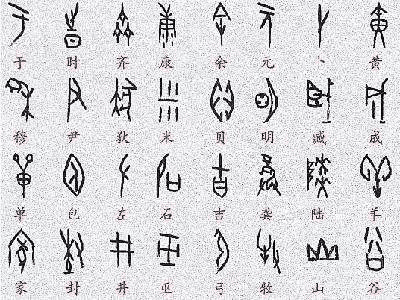 于 时 齐 康 余 元 卜 黄
穆 尹 狄 米 贝 明 臧 成
单 包 左 石 吉 龚 陆 羊
家 封 井 巫 弓 牧 山 谷